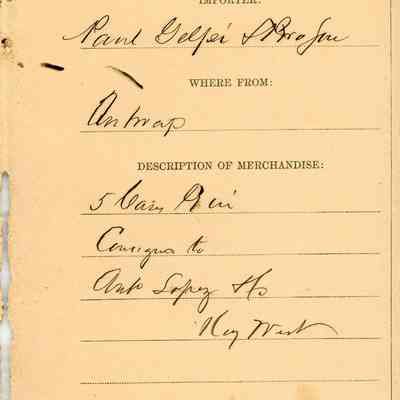 IMPORTER:
Paul Gelpi &
WHERE FROM:
Antwrap
DESCRIPTION OF MERCHANDISE:
5 Cases Gin
Consigned to
Anto Lopez
Key West